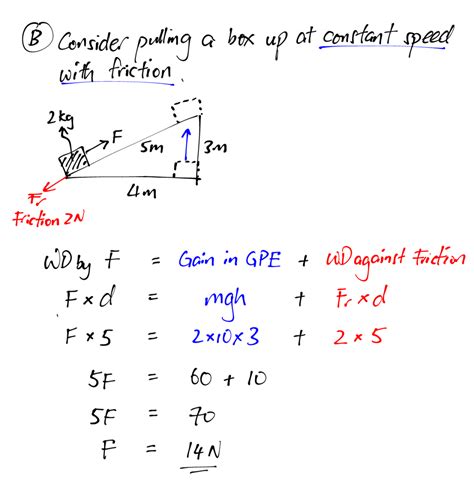 B Consider pulling a box up at constant speed
with friction.
2kg
F
5m
3m
4m
Fr
Friction 2N
WD by F = Gain in GPE + WD against Friction
F × d = mgh + Fr × d
F × 5 = 2×10×3 + 2 × 5
5F = 60 + 10
5F = 70
F = 14N